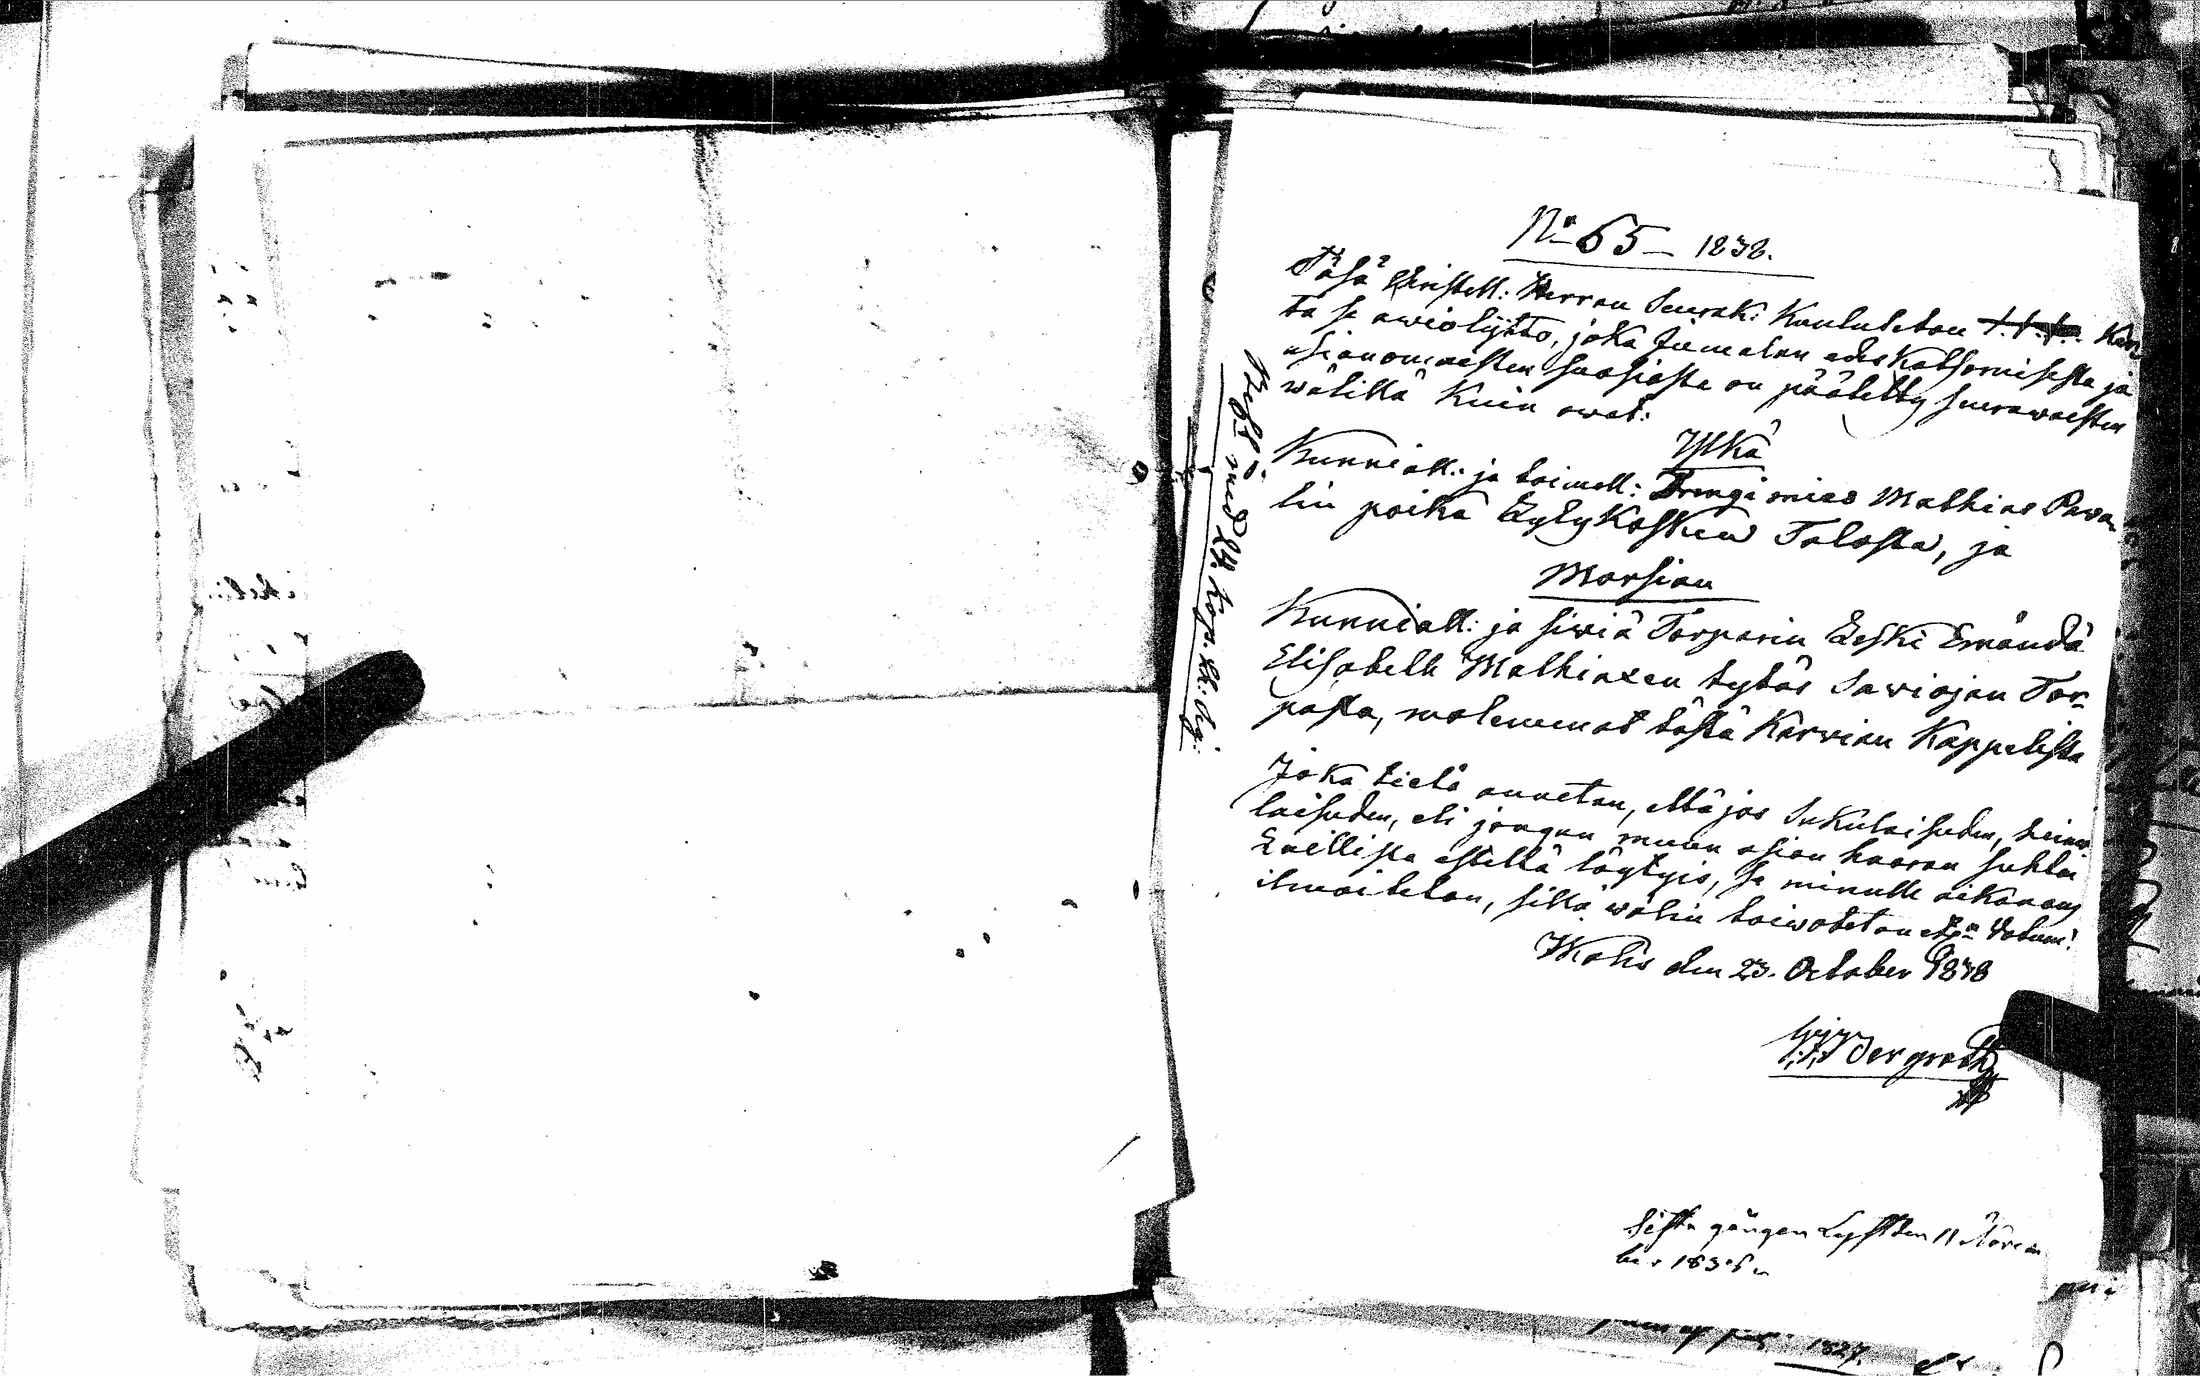 No 65 — 1838.
Täsä Christill: Herran Seurak: Kuulutetan Kan
ta se awioliitto, joka Jumalan edes Katsomisesta ja
asianomaisten suosiosta on päätetty seurawaisten
wälillä Kuin owat:
Ylkä
Kunniall: ja toimell: Drengi mies Mathias Pawa
lin poika Kyly Kosken Talosta, ja
Morsian
Kunniall: ja siwiä Torparin Leski Emändä
Elisabeth Mathiaxen tytär Sawiojan Tor-
pasta, molemmat tästä Karvian Kappelista
Joka tietä annetan, että jos Sukulaisuden, heimo
laisuden, eli jongun muun asian haaran suhten
Laillista estettä löytyis, se minulle aikanans
ilmoitetan, sillä wälin toiwotetan
den 23. October 1838
Bergroth
Sista gången Lyst den 11 Novem
ber 1838
1827.